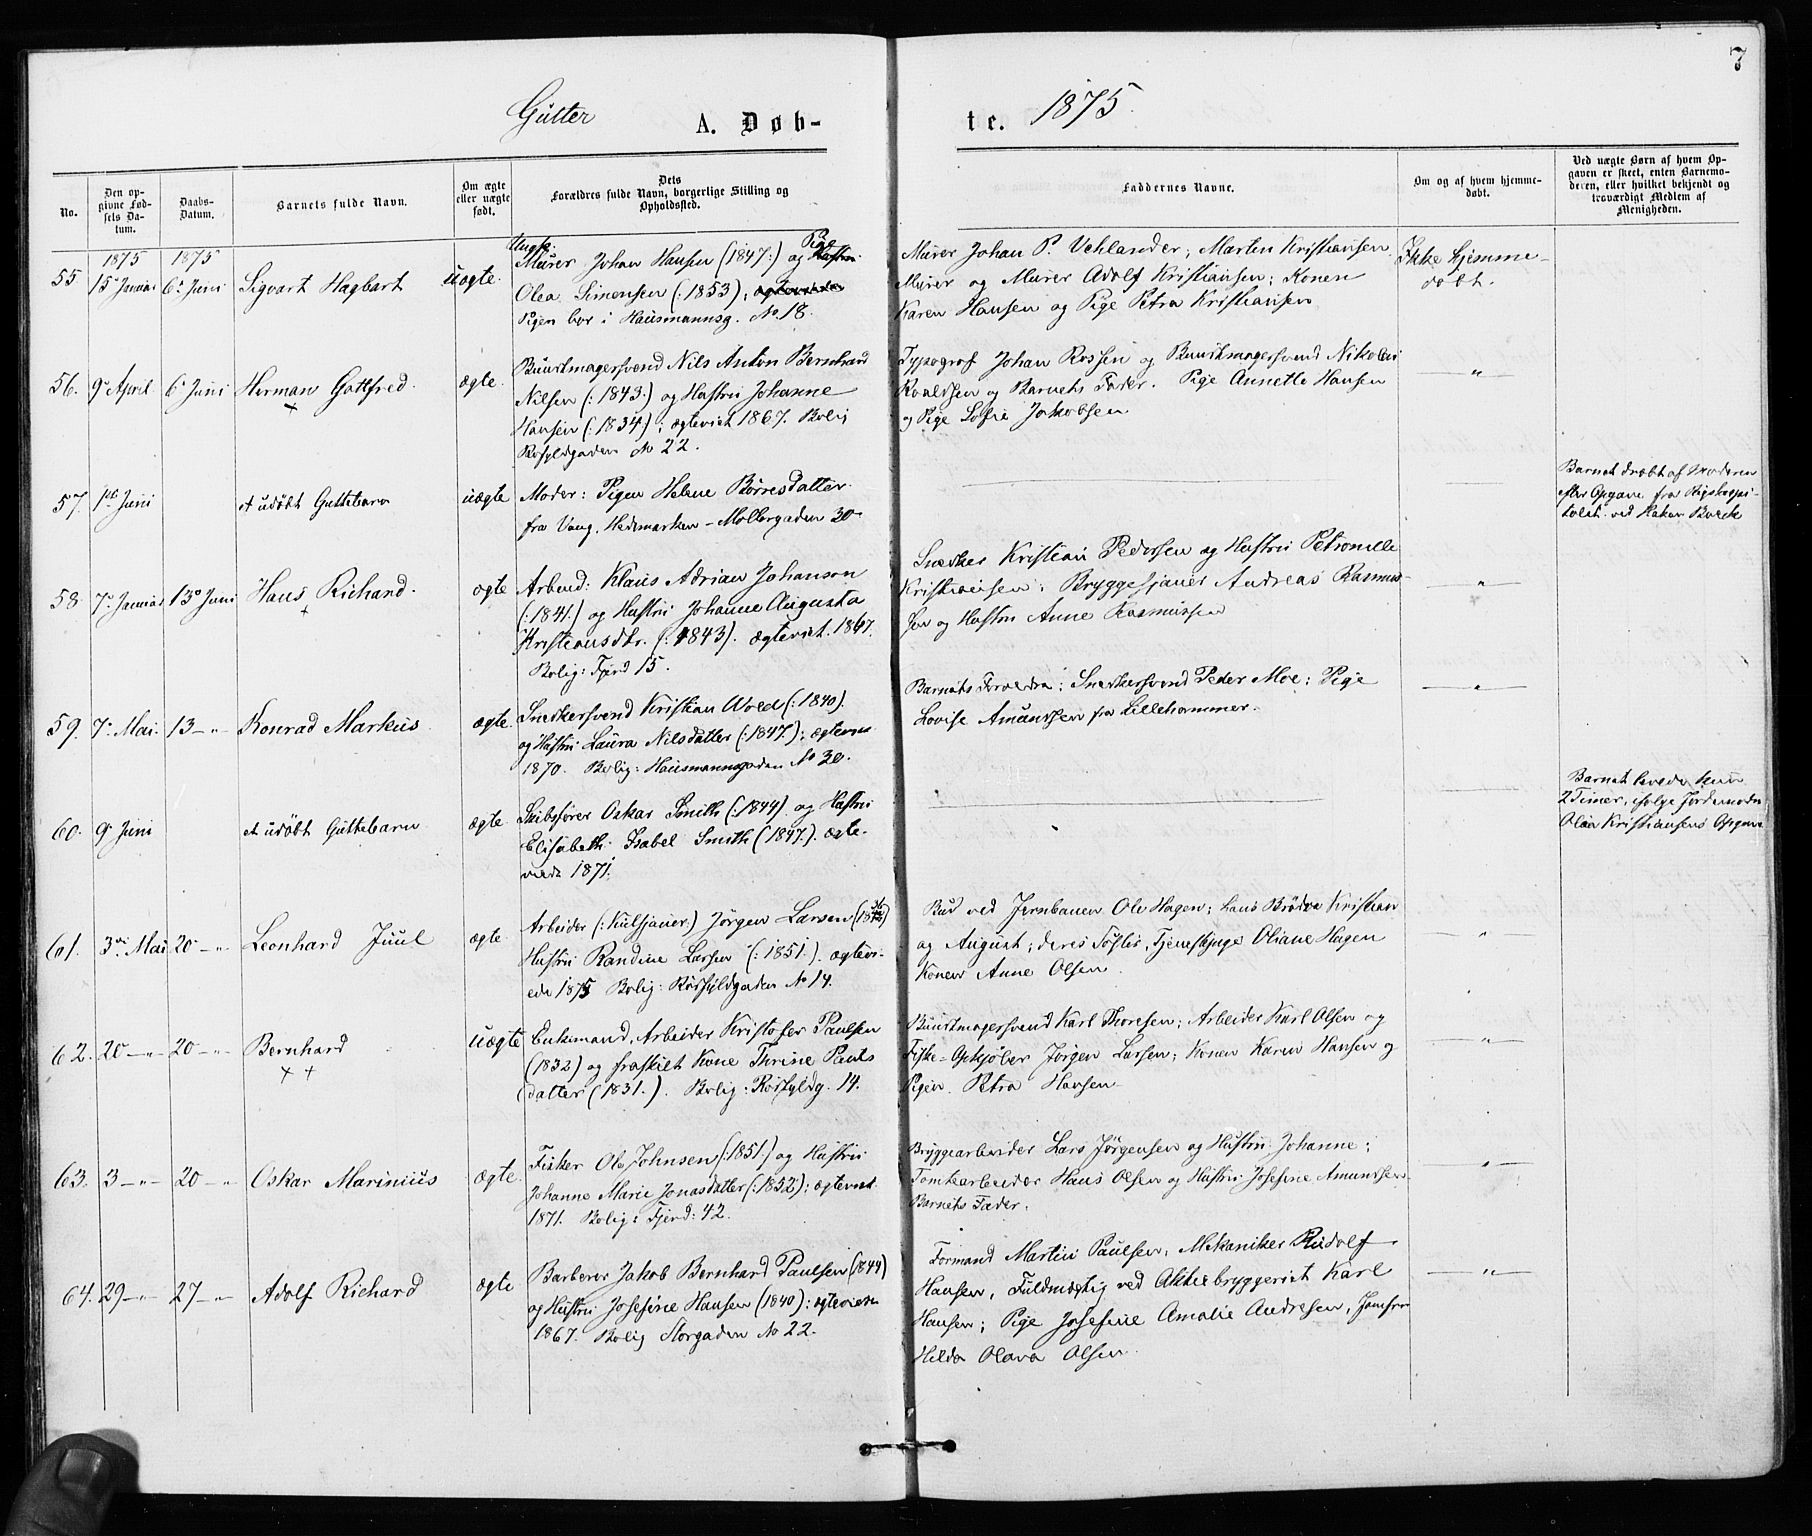 7
Gutter A. Døb-
te. 1875.
No.
Den op-
givne Fød-
sels Da-
tum.
Daabs-
Datum.
Barnets fulde Navn.
Om ægte
eller uægte
født.
Dets
Forældres fulde Navn, borgerlige Stilling og
Opholdssted.
Faddernes Navne.
Om og af hvem hjemme-
døbt.
Ved uægte Børn af hvem Op-
gaven er skeet, enten Barnemo-
deren, eller hvilket bekjendt og
troværdigt Medlem af
Menigheden.
1875 1875
55 15 Januar 6. Juni Sigvart Hagbart uægte.
Ungk. Pige
Murer Johan Hansen (1847:) og Hustru
Olea Simensen (:1853);
Pigen bor i Hausmannsg. No 18.
Murer Johan P. Vehlander; Martin Kristiansen
Murer og Murer Adolf Kristiansen; Konen
Karen Hansen og Pige Petra Kristiansen
Ikke hjemme-
døbt.
56. 9. April 6. Juni Herman Gottfred. ægte.
Buntmagersvend Nils Anton Bernhard
Nilsen (:1843:) og Hustru Johanne
Hansen (:1834:); ægteviet 1867. Bolig
No 22.
Typograf Johan Rossen og Buntmagersvend Nikolai
Roaldsen og Barnets Fader. Pige Annette Hansen
og Pige Sofie Jakobsen
— " —
57. 1ste Juni et udøbt Guttebarn uægte
Moder: Pigen Helene Børresdatter
fra Vang, Hedemarken – Møllergaden 30
Barnet dræbt af Moderen
efter Opgave fra Rigshospi-
talet ved Hakon Boeck
58. 7. Januar 13. Juni Hans Richard. ægte
Arbeid: Klaus Adrian Johanson
(:1841.) og Hustru Johanne Augusta
Kristiansdtr. (:1843). ægteviet. 1867.
Bolig: Fjerd 15.
Snedker Kristian Pedersen og Hustru Petronille
Kristiansen; Bryggesjauer Andreas Rasmus-
sen og Hustru Anne Rasmussen
— " —
59. 7. Mai. 13 — " — Konrad Markus ægte.
Snedkersvend Kristian Wold (:1840).
og Hustru Laura Nilsdatter (:1847.); ægteviet
1870. Bolig: Hausmannsgaden No 30.
Barnets Forældre; Snedkersvend Peder Moe; Pige
Lovise Amundsen fra Lillehammer.
— " —
60. 9. Juni et udøbt Guttebarn ægte.
Skibsfører Oskar Smith (:1844). og Hustru
Elisabeth Isabel Smith (1847.). ægte-
viede 1871.
Barnet levede kun
2 Timer, ifølge Jordemoder
Olea Kristiansens Opgave
61. 3die Mai 20 — " — Leonhard Juul ægte
Arbeider (:Kulsjauer.) Jørgen Larsen
Hustru Randine Larsen (:1851.). ægtevi-
ede 1875 Bolig: Rødfyldgaden No 14.
Bud ved Jernbanen Ole Hagen; hans Brødre Kristian
og August; deres Søster, Tjenestepige Oliane Hagen
Konen Anne Olsen
— " —
62. 20 — " — 20 — " — Bernhard uægte
Enkemand, Arbeider Kristofer Paulsen
(1832) og fraskilt Kone Thrine Pauls
datter (1831.). Bolig: Rødfyldg. 14.
Buntmagersvend Karl Thoresen; Arbeider Karl Olsen og
Fiske-Opkjøber Jørgen Larsen; Konen Karen Hansen og
Pigen Petra Hansen
— " —
63. 3 — " — 20 — " — Oskar Marinius ægte.
Fisker Ole Johnsen (:1851.) og Hustru
Johanne Marie Jonasdatter (:1852); ægteviet
1871. Bolig: Fjerd: 42.
Bryggearbeider Lars Jørgensen og Hustru Johanne;
Tomtearbeider Hans Olsen og Hustru Josefine Amundsen
Barnets Fader.
— " —
64. 29 — " — 27 — " — Adolf Richard ægte
Barberer Jakob Bernhard Paulsen (1844)
og Hustru Josefine Hansen (1840): ægteviet
1867. Bolig Storgaden No 22.
Formand Martin Paulsen, Mekaniker Rudolf
Hansen, Fuldmægtig ved Aktiebryggeriet Karl
Hansen; Pige Josefine Amalie Andresen, Jomfru
Hilda Olava Olsen.
— " —